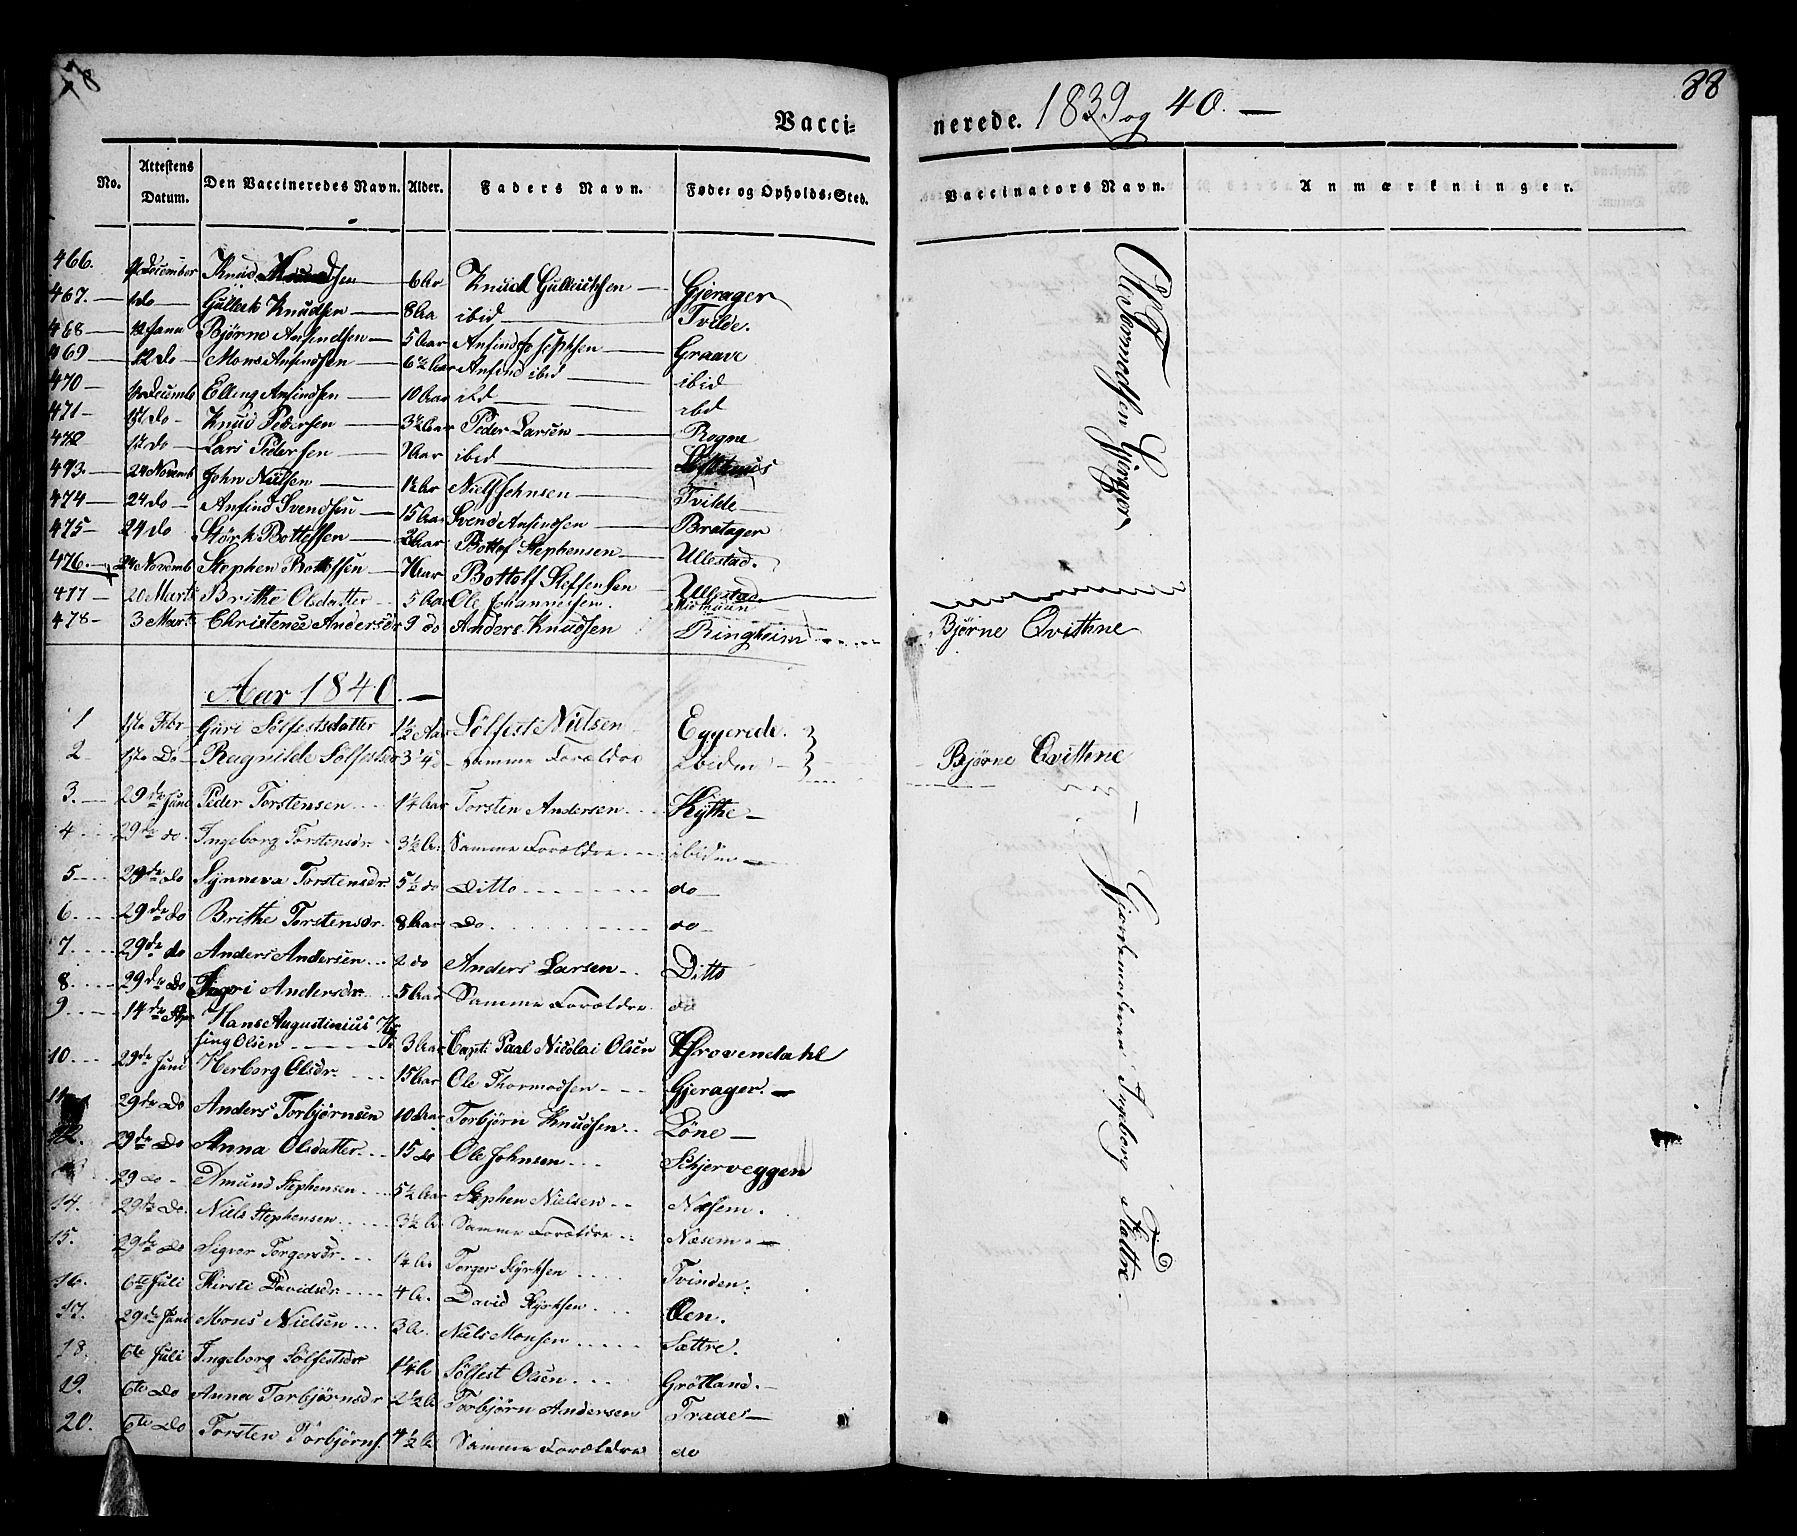 88
Vacci=
nerede. 1839 og 40. —
No. Attestens Datum. Den Vaccineredes Navn. Alder. Faders Navn. Føde= og Opholds=Sted. Vaccinators Navn. Anmærkninger.
466. December Knud Knudsen 6 Aar Knud Gulleichsen Gjerager
467. do Gullerk Knudsen 8 Aa ibid Tvilde.
468 12 Janu Bjørne Anfindsen 5 Aar Anfind Josephsen Graave
469 12 do Mons Anfindsen 6½ Aar Anfind ibid ibid
470 Decemb Elling Anfindsen 10 Aar ibd ibd
471 17 do Knud Pedersen 3½ Aar Peder Larsen Rogne
472 17 do Lars Pedersen 7 Aar ibid
473. 24 Novemb John Nielsen 1½ Ar Niels Johnsen Tvilde
474 24 do Anfind Svendsen 15 Aar Svend Anfindsen Bratager
475 24 do Størk Bottefsen 2 Aar Bottof Stephensen Ullestad.
476. 24 Novemb Stephen Bottofsen 7 Aar Bottolf Steffensen Ullestad.
477 20 Marti Brithe Olsdatter 5 Aar Ole Johannesen.
478 3 Marti Christense Andersdr 9 do Anders Knudsen Ringheim
Ole Tormodsen Gjerager
Bjørne Qvithne
Aar 1840. —
1 17te Febr Guri Sølfestsdatter 1½ Aar Sølfest Nielsen Eggerede.
2 17te Do Ragnilde Sølfestsdr 3¼ do Samme Forældre ibidm
Bjørne Qvithne
3. 29de Juni Peder Torstensen 1¼ Aar Torsten Andersen Kythe
4 29de do. Ingeborg Torstensdr. 3½ A. Samme Forældre ibidm
5 29de do Synneva Torstensdr. 5½ do Ditto do
6 29de do Brithe Torstensdr. 8 Aar Do do
7. 29de do Anders Andersen 2 do Anders Larsen Ditto
8. 29de do Ingri Andersdr. 5 Aar Samme Forældre. do
9. 14de Hans Augustinius
sing Olsen 3 Aar Capt: Paal Nicolai Olsen Grovendahl
10. 29de Juni Herborg Olsdr. 15 Aar Ole Thormodsen Gjerager.
11 29de Do Anders Torbjørnsen 10 Aar Torbjørn Knudsen Løne
12. 29de Do Anna Olsdatter 15 do Ole Johnsen Skjerveggen
29 do Amund Stephensen 5½ Aar Stephen Nielsen Næsem.
14. 29de Do. Niels Stephensen 3½ A. Samme Forældre Næsem.
15. 29de Do Sigvor Torgersdr. 1¼ A. Torger Styrksen Tvinden.
16. 6te Juli Kirsti Davidsdr. 4 A. David Styrksen Øen.
17. 29de Juni Mons Nielsen 3 A. Niels Monsen Sættre.
18. 6te Juli Ingeborg Sølfestsdr 1¼ A Sølfest Olsen Grøtland.
19. 6te Do Anna Torbjørnsdr 2½ A Torbjørn Andersen Traae
20. 6te Do Torsten Torbjørns. 4½ A Samme Forældre do
Gjordemoderen Ingeborg Sættre.